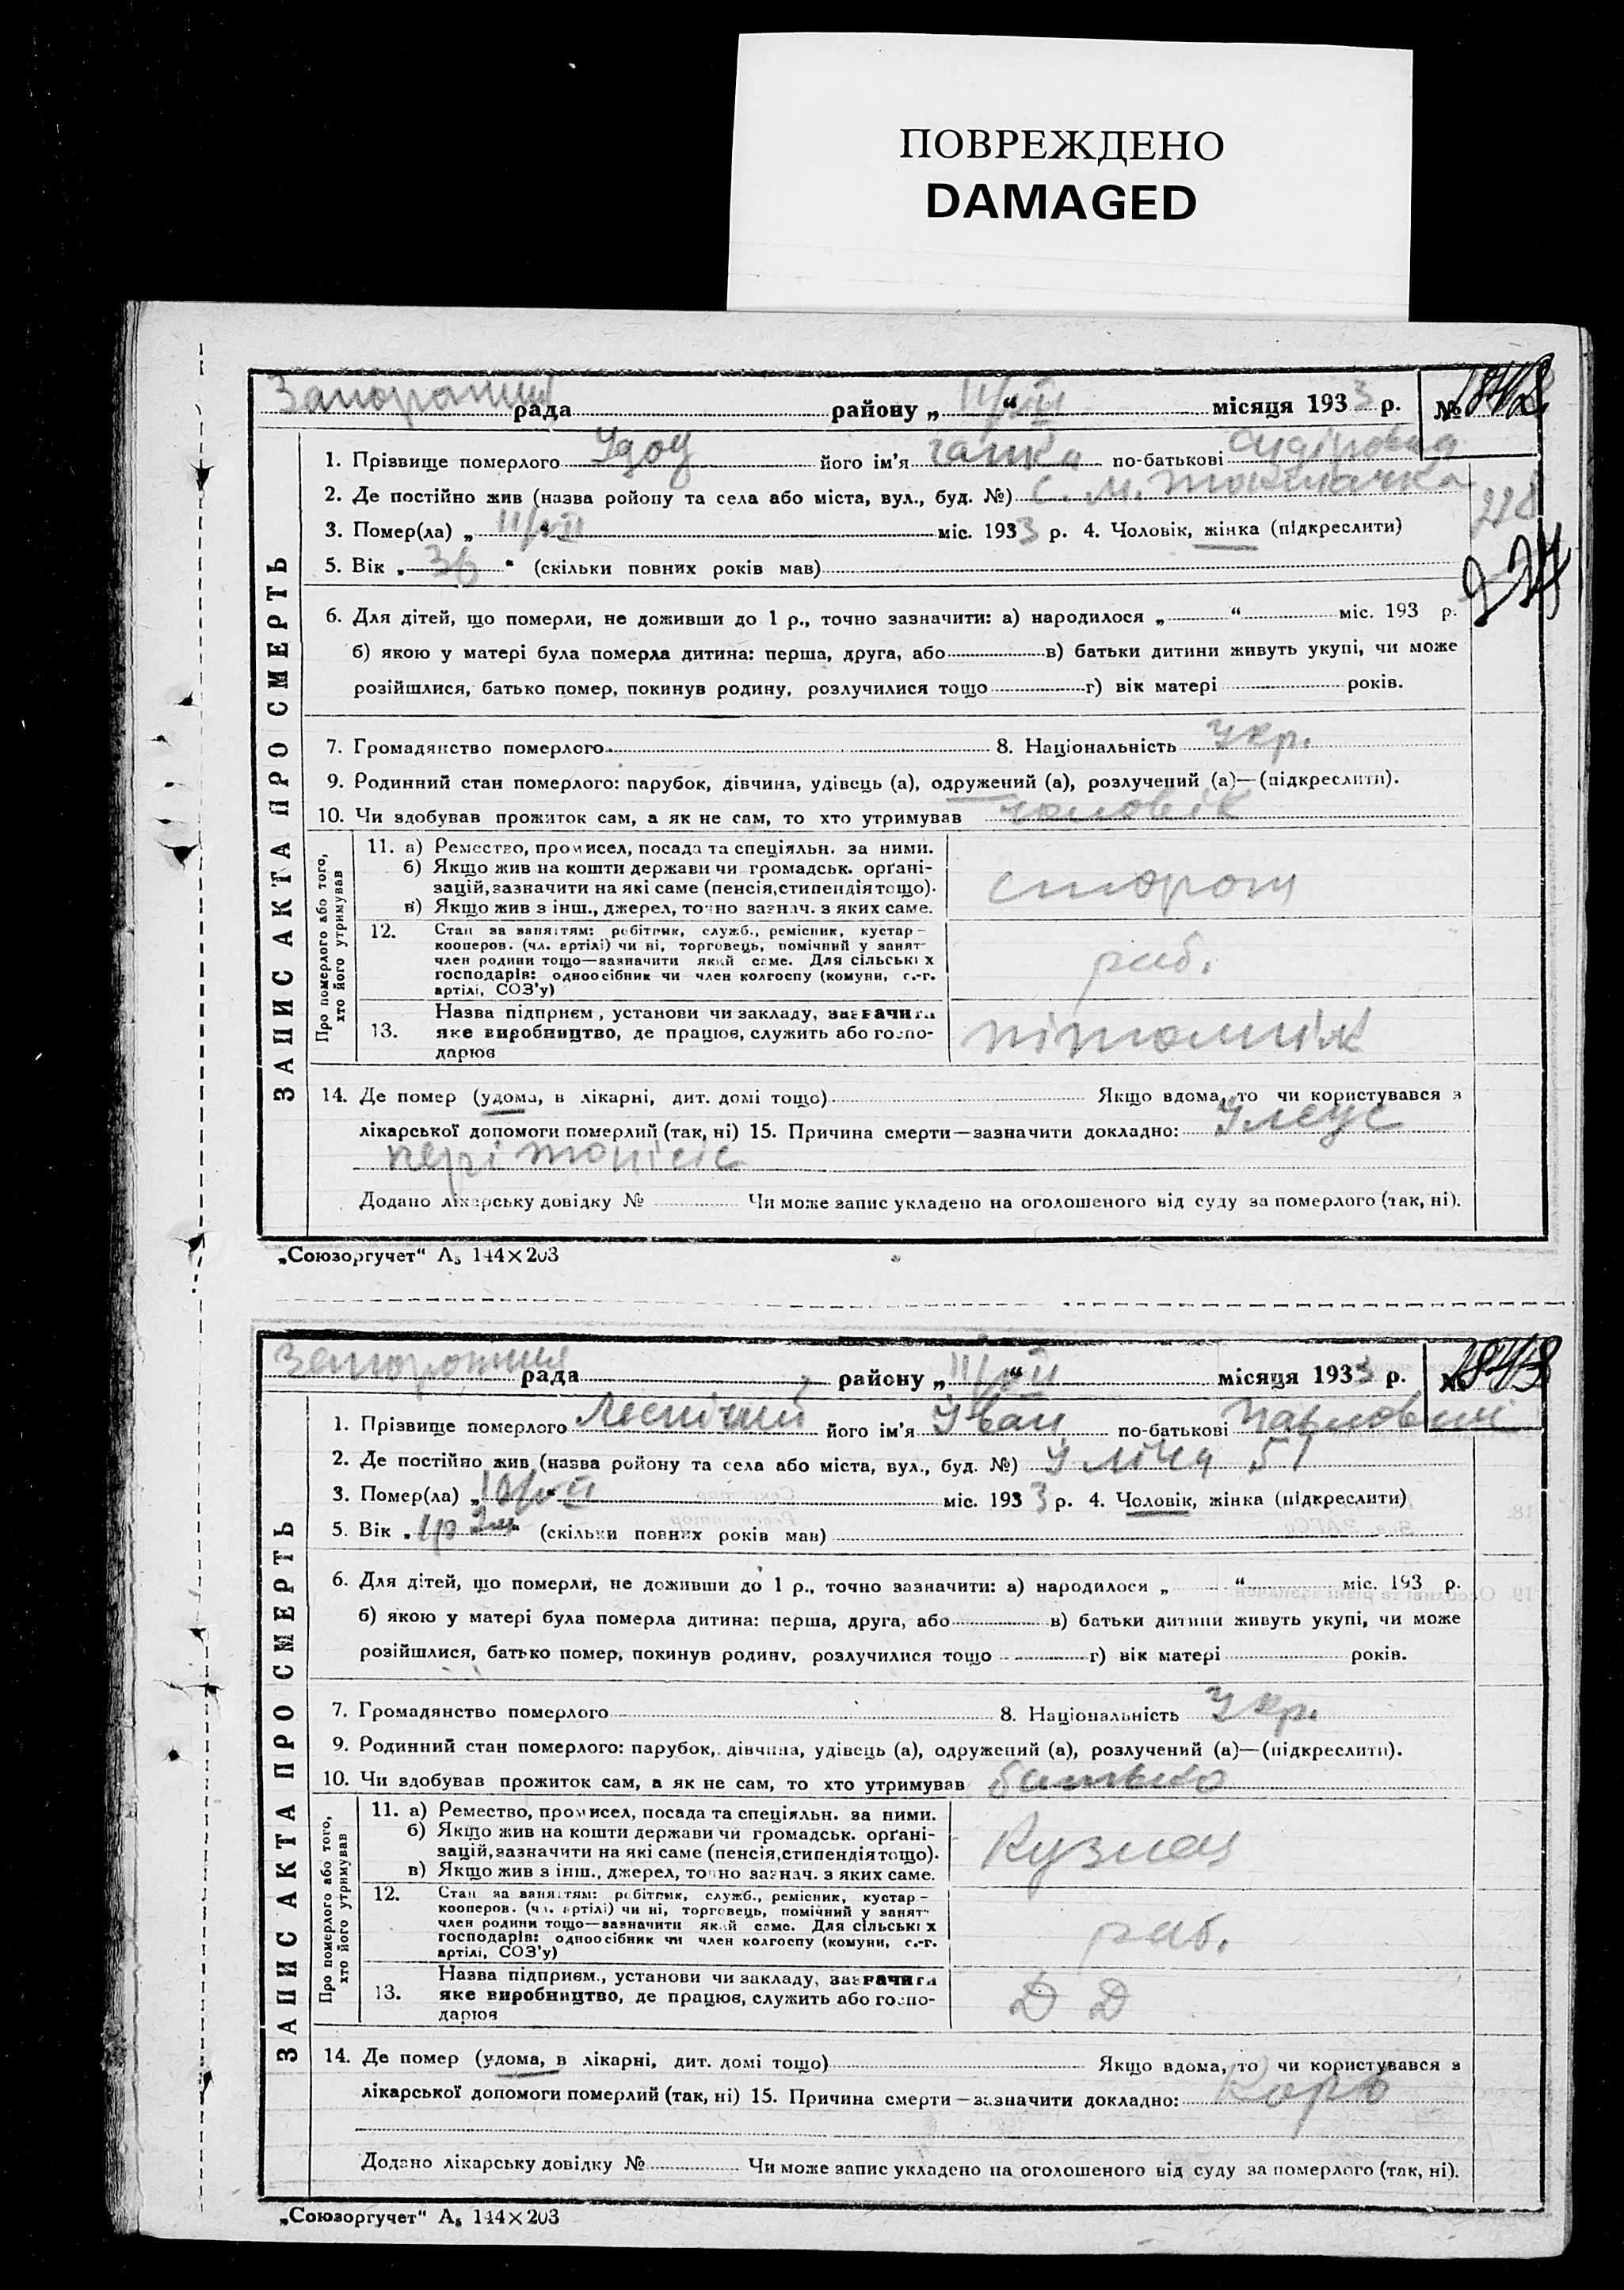 ПОВРЕЖДЕНО
DAMAGED
рада районy „ 11/VII “ місяця 1933 р. №
1. Прізвище померлого його ім'я по-батькові
2. Де постійно жив (назва ройону та села або міста, вул., буд. №) с. М. Токмачка
3. Помер(ла) „ 11/VII “ міс. 1933 р. 4. Чоловік, жінка (підкреслити)
5. Вік „ 36 “ (скільки повних років мав)
6. Для дітей, що померли, не доживши до 1 р., точно зазначити: а) народилося „ “ міс. 193 р.
б) якою у матері була померла дитина: перша, друга, або в) батьки дитини живуть укупі, чи може
розійшлися, батько помер, покинув родину, розлучилися тощо г) вік матері років.
7. Громадянство померлого 8. Національність Укр.
9. Родинний стан померлого: парубок, дівчина, удівець (а), одружений (а), розлучений (а)—(підкреслити).
10. Чи здобував прожиток сам, а як не сам, то хто утримував чоловік
Про померлого або того, хто його утримував
11. а) Ремество, промисел, посада та спеціяльн. за ними.
б) Якщо жив на кошти держави чи громадськ. орґані-
зацій, зазначити на які саме (пенсія, стипендія тощо).
в) Якщо жив з інш., джерел, точно зазнач. з яких саме.
сторож
12. Стан за заняттям: робітник, служб., ремісник, кустар-
кооперов. (чл. артілі) чи ні, торговець, помічний у занят-
член родини тощо—зазначити який саме. Для сільських
господарів: одноосібник чи член колгоспу (комуни, с.-г.
артілі, СОЗ'у)
раб.
13. Назва підприєм., установи чи закладу, зазначити
яке виробництво, де працює, служить або госпо-
дарює
пітомнік
14. Де помер (удома, в лікарні, дит. домі тощо) Якщо вдома, то чи користувався з
лікарської допомоги померлий (так, ні) 15. Причина смерти—зазначити докладно: Улеус
Додано лікарську довідку № Чи може запис укладено на оголошеного від суду за померлого (так, ні).
ЗАПИС АКТА ПРО СМЕРТЬ
„Союзоргучет“ А₅ 144×203
рада району „ 11/VII “ місяця 1933 р. №
1. Прізвище померлого Леснічий його ім'я Іван по-батькові
2. Де постійно жив (назва ройону та села або міста, вул., буд. №)
3. Помер(ла) „ 10/VII “ міс. 1933 р. 4. Чоловік, жінка (підкреслити)
5. Вік „ 1р 3м “ (скільки повних років мав)
6. Для дітей, що померли, не доживши до 1 р., точно зазначити: а) народилося „ “ міс. 193 р.
б) якою у матері була померла дитина: перша, друга, або в) батьки дитини живуть укупі, чи може
розійшлися, батько помер, покинув родину, розлучилися тощо г) вік матері років.
7. Громадянство померлого 8. Національність Укр.
9. Родинний стан померлого: парубок, дівчина, удівець (а), одружений (а), розлучений (а)—(підкреслити).
10. Чи здобував прожиток сам, а як не сам, то хто утримував батько
Про померлого або того, хто його утримував
11. а) Ремество, промисел, посада та спеціяльн. за ними.
б) Якщо жив на кошти держави чи громадськ. орґані-
зацій, зазначити на які саме (пенсія, стипендія тощо).
в) Якщо жив з інш., джерел, точно зазнач. з яких саме.
12. Стан за заняттям: робітник, служб., ремісник, кустар-
кооперов. (чл. артілі) чи ні, торговець, помічний у занят-
член родини тощо—зазначити який саме. Для сільських
господарів: одноосібник чи член колгоспу (комуни, с.-г.
артілі, СОЗ'у)
раб.
13. Назва підприєм., установи чи закладу, зазначити
яке виробництво, де працює, служить або госпо-
дарює
Д Д
14. Де помер (удома, в лікарні, дит. домі тощо) Якщо вдома, то чи користувався з
лікарської допомоги померлий (так, ні) 15. Причина смерти—зазначити докладно: Корь
Додано лікарську довідку № Чи може запис укладено на оголошеного від суду за померлого (так, ні).
ЗАПИС АКТА ПРО СМЕРТЬ
„Союзоргучет“ А₅ 144×203